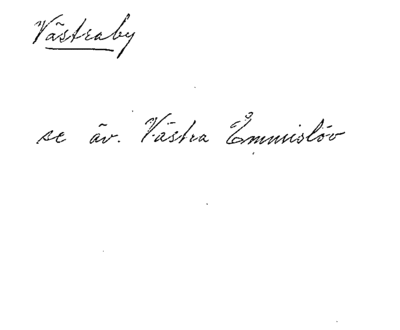 Västraby
se äv. Västra Emmislöv